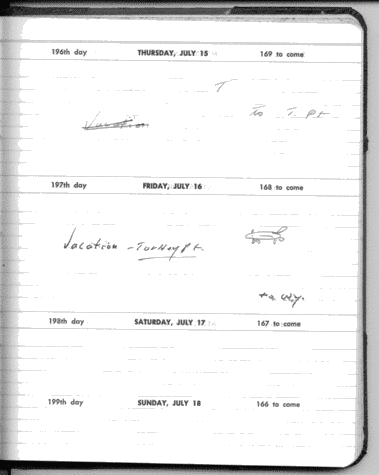 196th day THURSDAY, JULY 15 169 to come
T
To T. Pt
Vacation
197th day FRIDAY, JULY 16 168 to come
Vacation - Torney Pt.
198th day SATURDAY, JULY 17 167 to come
199th day SUNDAY, JULY 18 166 to come